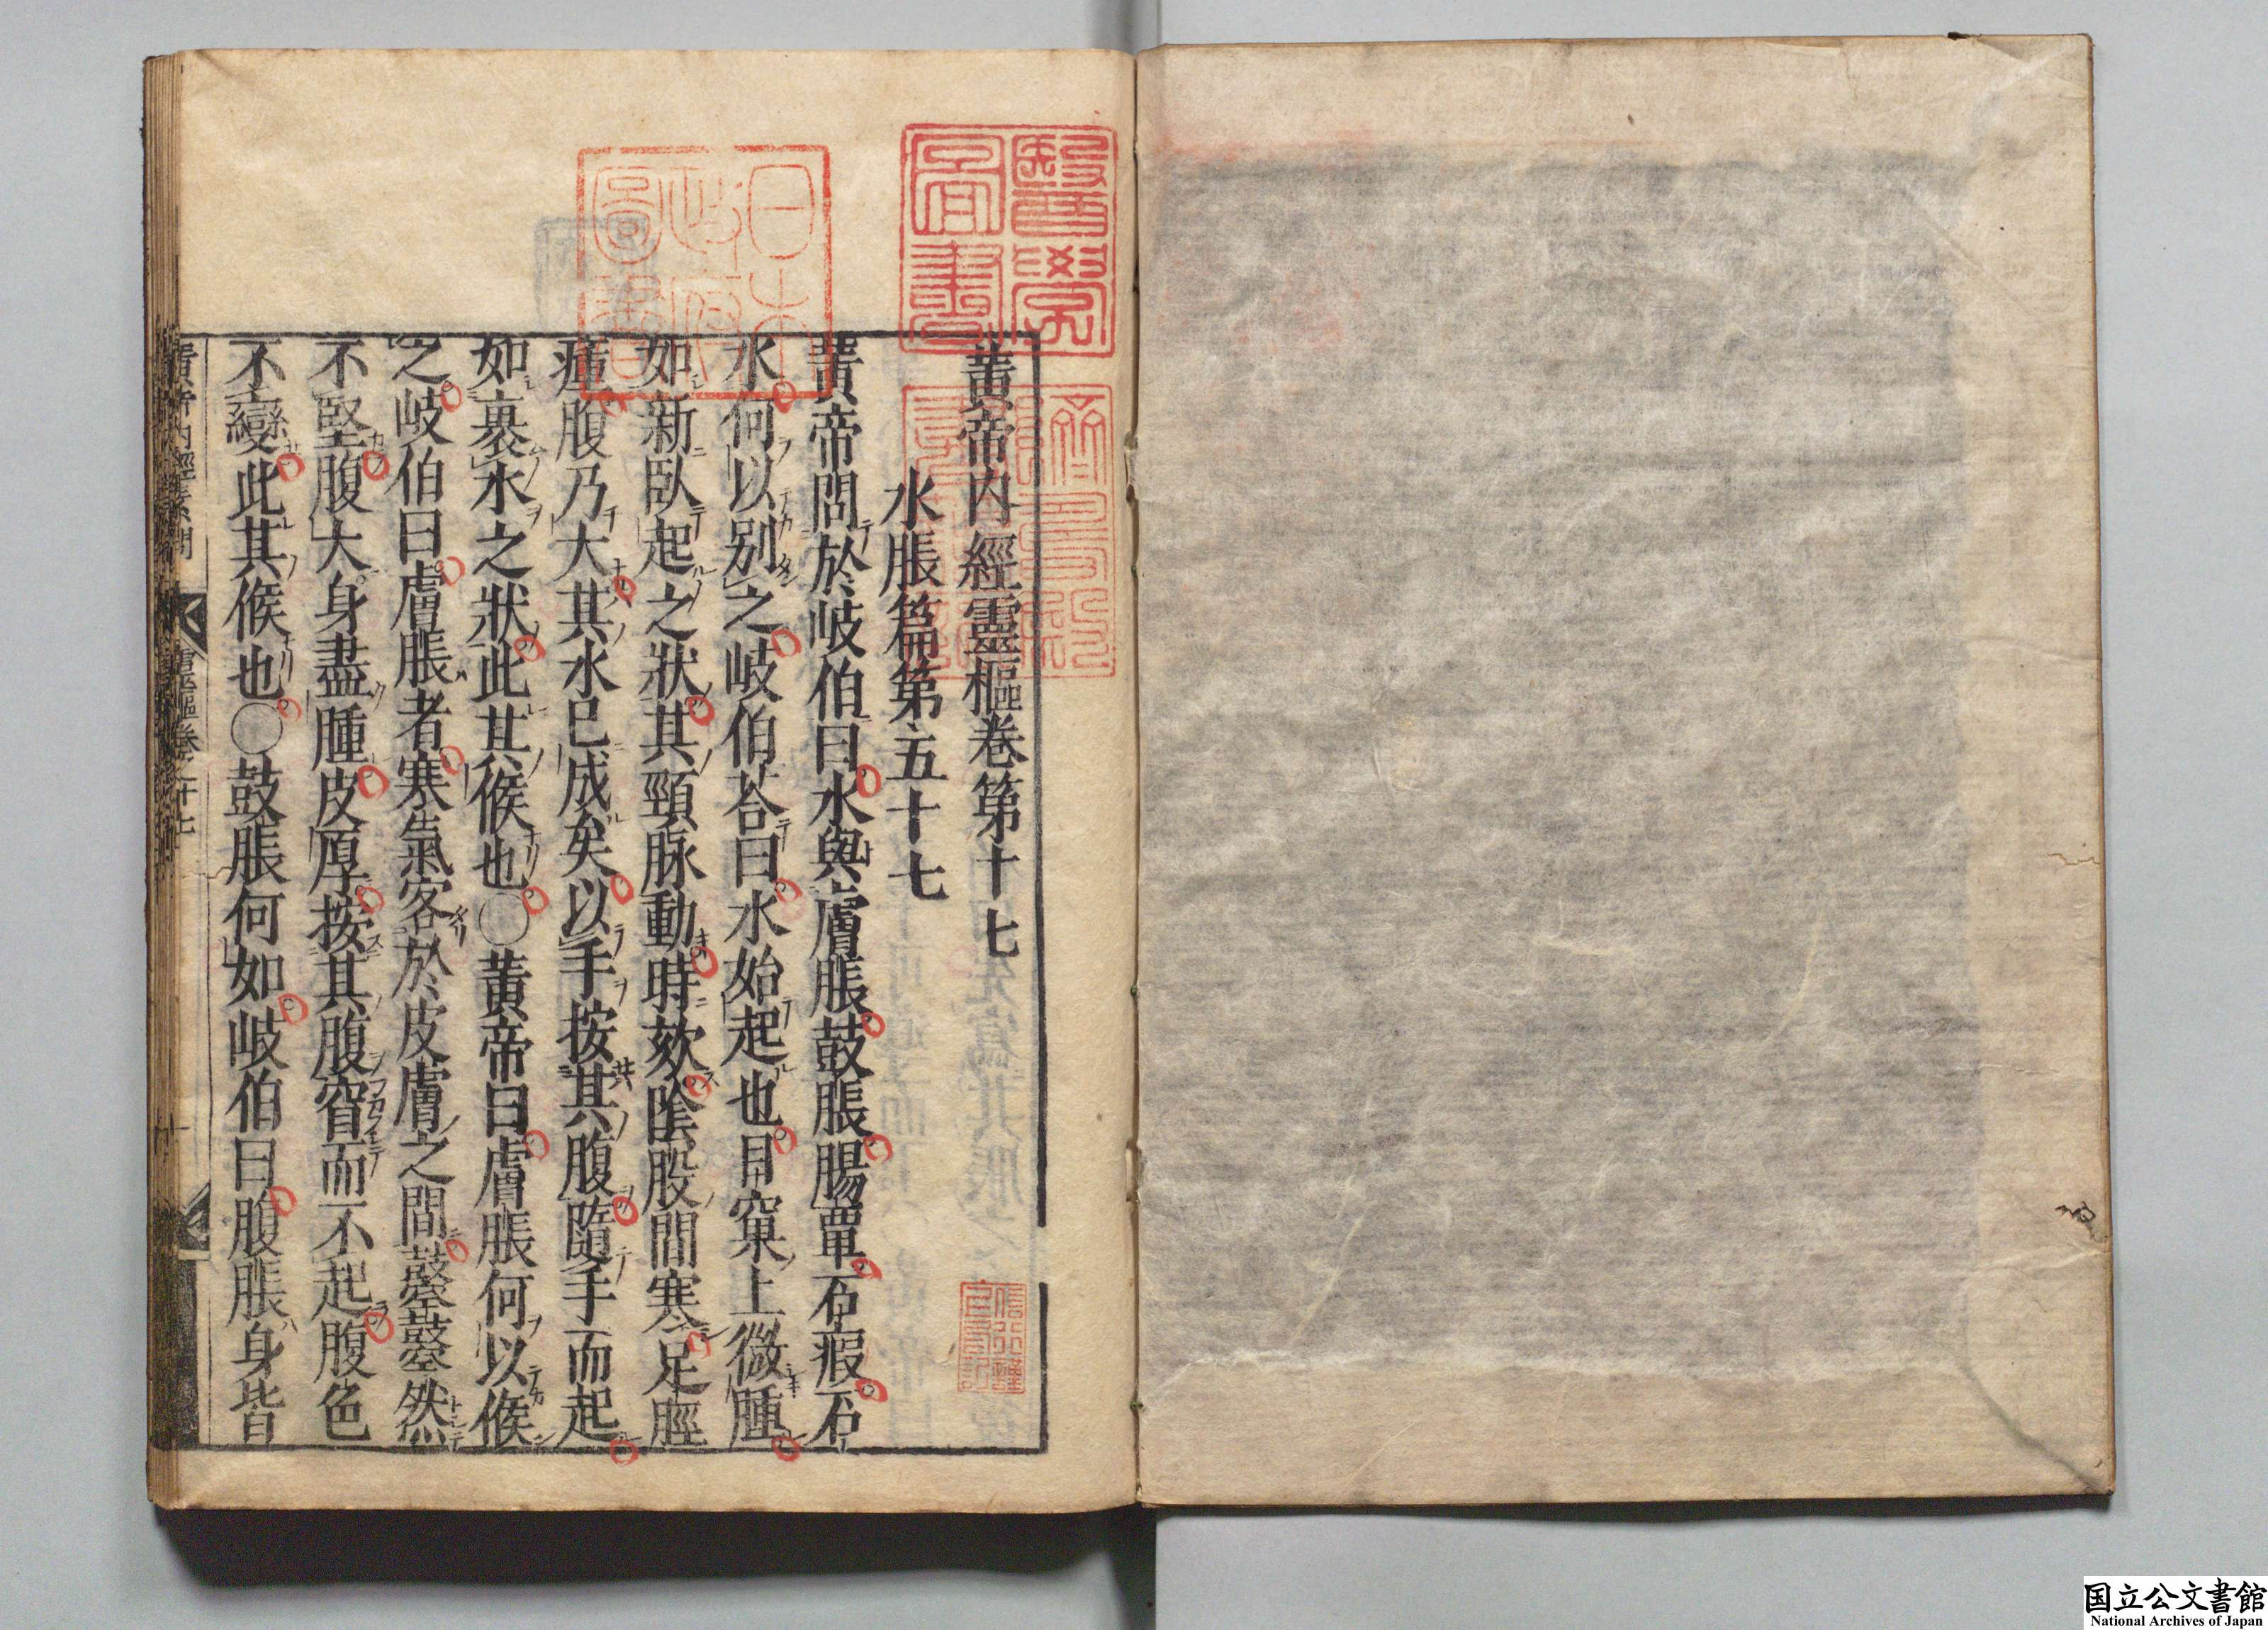 黄帝內經靈樞卷第十七
水脹篇第五十七
黃帝問於岐伯曰水與膚脹鼓脹腸覃石瘕石
水何以别之岐伯荅曰水始起也目窠上微腫
如新臥起之狀其頸脉動時欬陰股間寒足脛
瘇腹乃大其水已成矣以手按其腹隨手而起
如裹水之狀此其候也○黃帝曰膚脹何以候
之岐伯曰膚脹者寒氣客於皮膚之間鼞鼞然
不堅腹大身盡腫皮厚按其腹窅而不起腹色
不變此其候也○鼓脹何如岐伯曰腹脹身皆
黃帝內經素問 靈樞卷之十七 一
醫學圖書
日本政府圖書
国立公文書館
National Archives of Japan